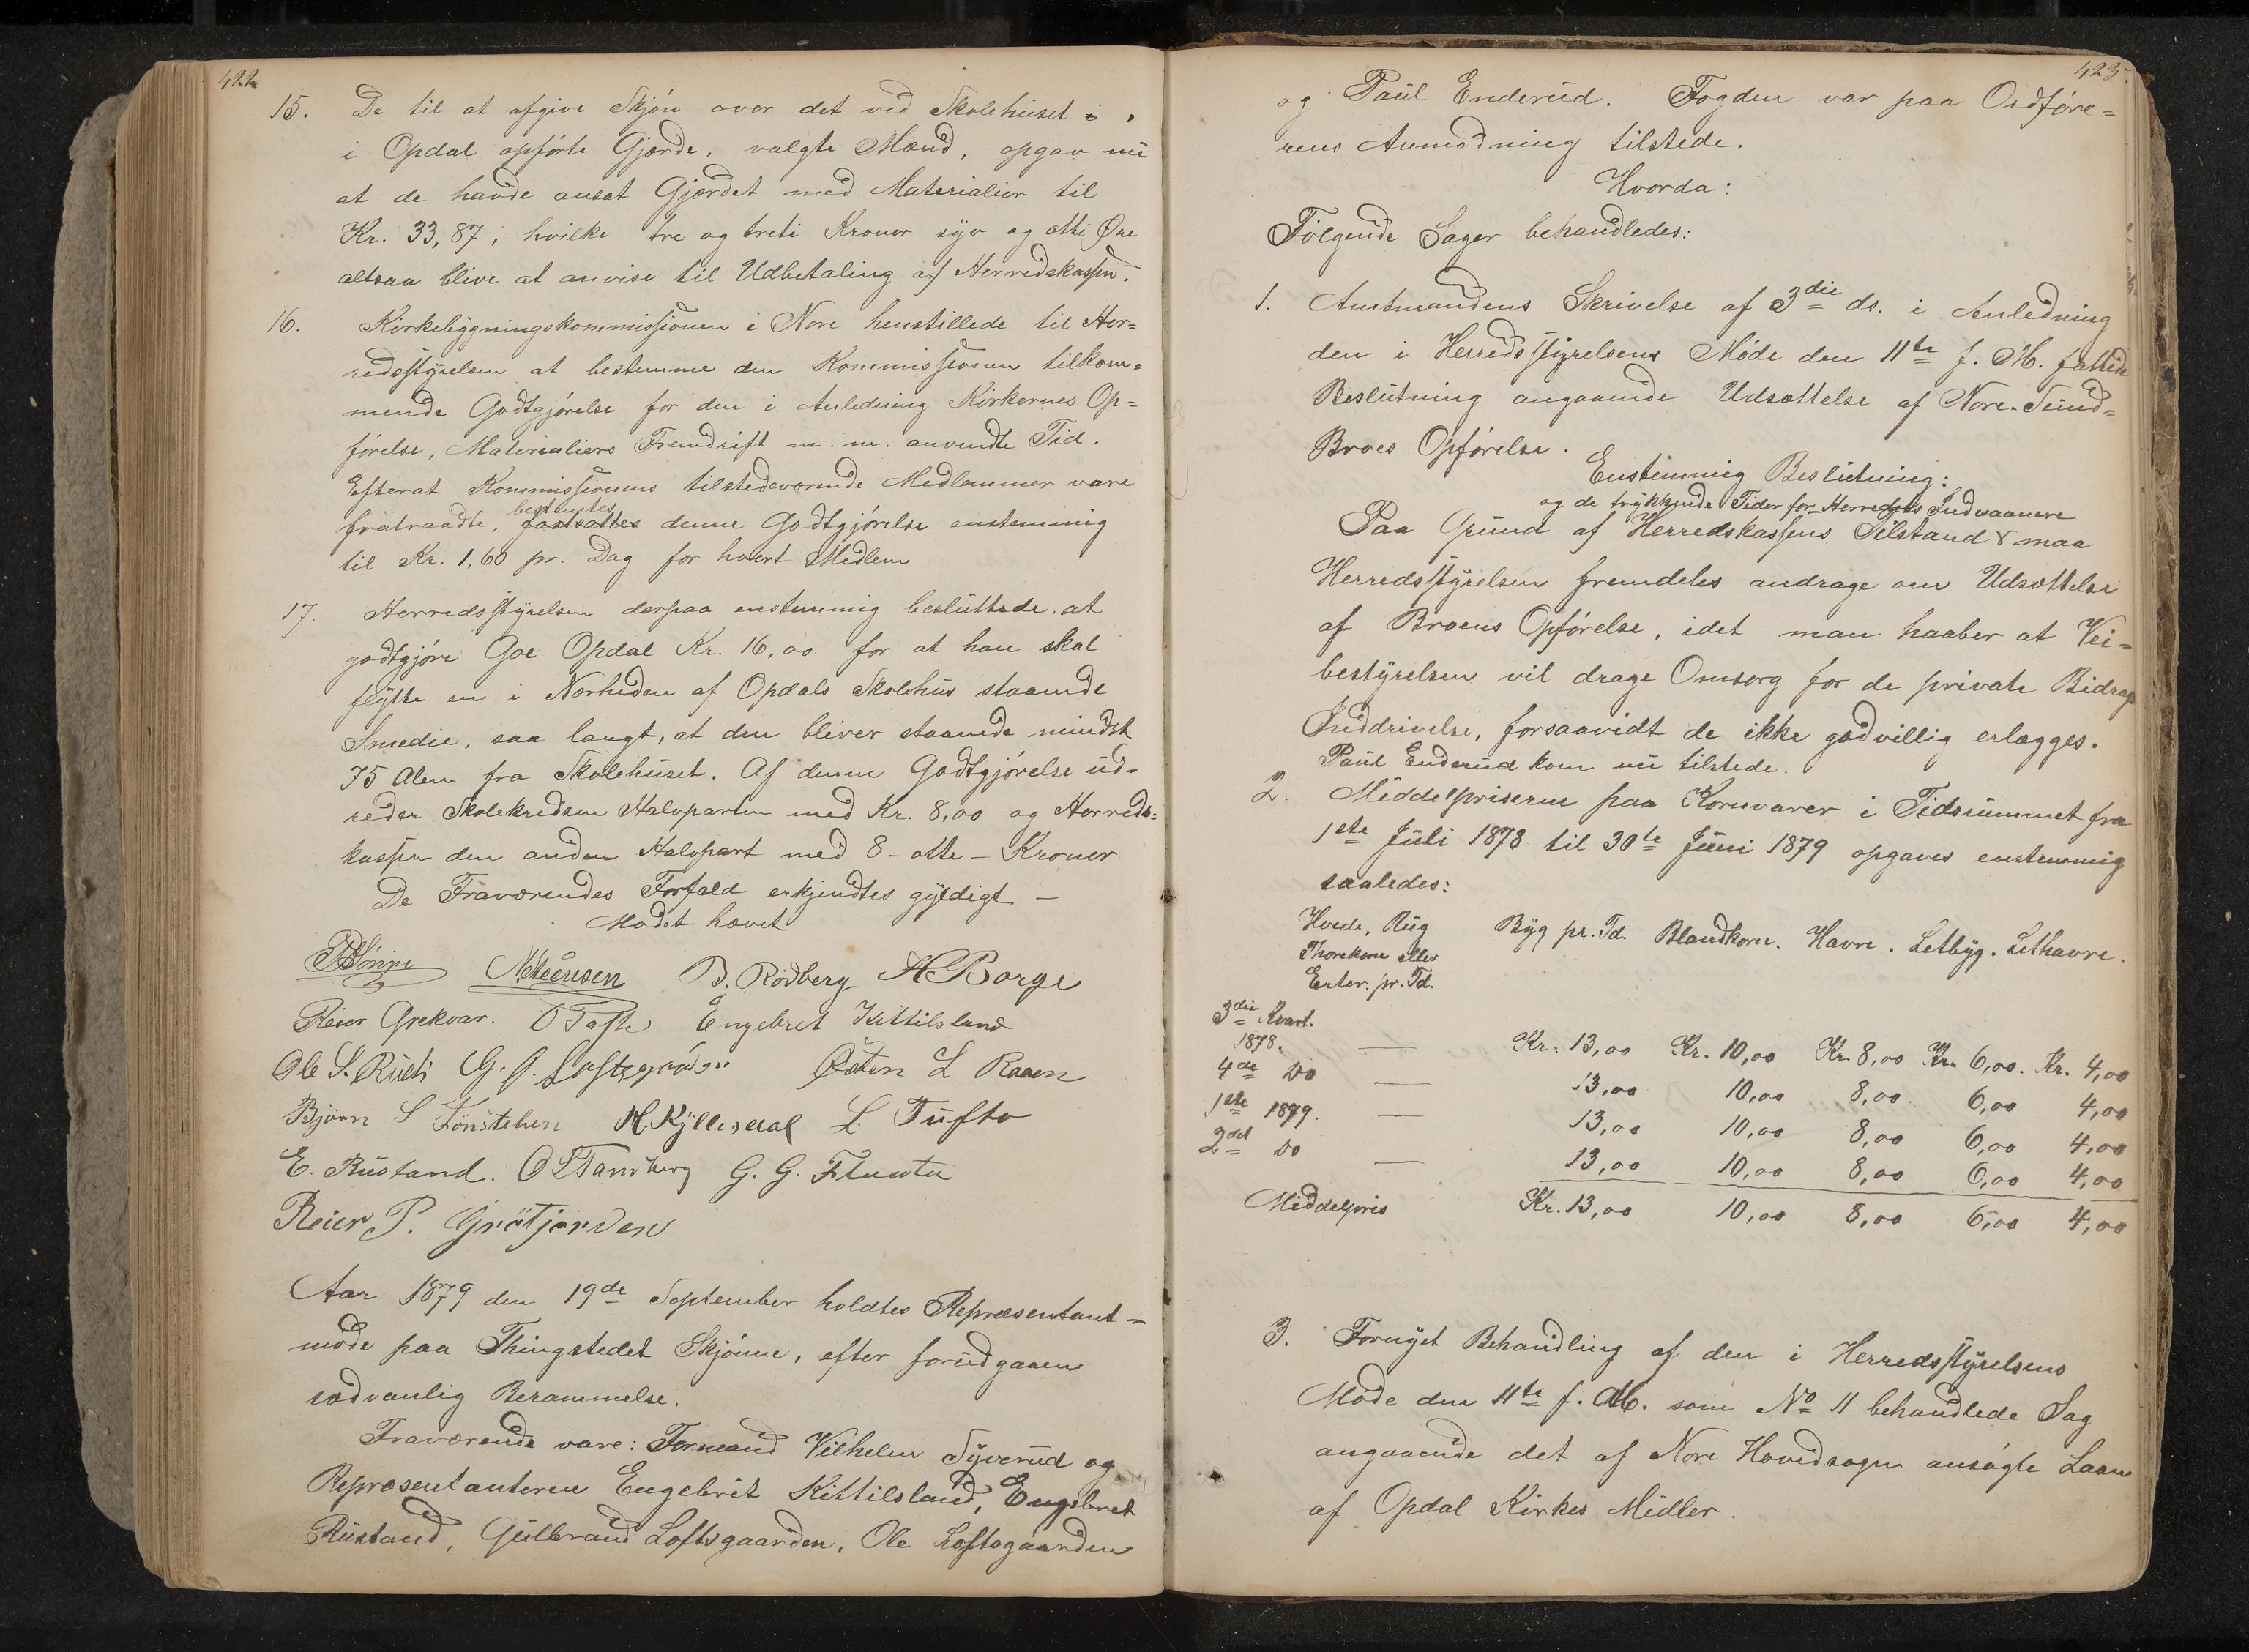 422
15. De til at afgive Skjøn over det ved Skolehuset i
i Opdal opførte Gjærde, valgte Mænd, opgav nu
at de havde ansat Gjærdet med Materialier til
Kr. 33,87, hvilke tre og treti Kroner syv og otti Øre
altsaa blive at anvise til Udbetaling af Herredskassen.
16. Kirkebygningskommissionen i Nore henstillede til Her=
redsstyrelsen at bestemme den Kommissionen tilkom=
mende Godtgjørelse for den i Anledning Kirkernes Op=
førelse, Materialiers Fremdrift m. m. anvendte Tid.
Efterat Kommissionens tilstedeværende Medlemmer vare
bestemtes
fratraadte, fastsattes denne Godtgjørelse enstemmig
til Kr. 1,60 pr. Dag for hvert Medlem
17. Herredsstyrelsen derpaa enstemmig besluttede at
godtgjøre Goe Opdal Kr. 16,00 for at han skal
flytte en i Nærheden af Opdals Skolehus staaende
Smedie, saa langt, at den bliver staaende mindst
75 Alen fra Skolehuset. Af denne Godtgjørelse ud=
reder Skolekredsen Halvparten med Kr. 8,00 og Herreds=
kassen den anden Halvpart med 8 - otte - Kroner
De Fraværendes Forfald erkjendtes gyldigt —
Mødet hævet
NSteensen D. Rødberg H Borge
Reier Grekvar. O Tofte Engebret Kittilsland
Ole S. Rudi G. G. Loftsgaarden Østen L Raaen
Bjørn S Tønstehen H. Kjlledal L. Tufto
E. Rustand. O Tandberg G. G. Fluata
Reier P. Grøtjorden
Aar 1879 den 19de September holdtes Repræsentant=
møde paa Thingstedet Skjønne, efter forudgaaen
sædvanlig Berammelse.
Fraværende vare: Formand Vilhelm Syverud og
Repræsentanterne Engebrit Kittilsland, Engebret
Rustand, Gulbrand Loftsgaarden, Ole Loftsgaarden
423.
og Paul Enderud. Fogden var paa Ordføre=
rens Anmodning tilstede.
Hvorda:
Følgende Sager behandledes:
1. Amtmandens Skrivelse af 3die ds. i Anledning
den i Herredsstyrelsens Møde den 11te f. M. fattede
Beslutning angaaende Udsættelse af Nore-Sund=
Broes Opførelse.
Enstemmig Beslutning:
og de trykkende Tider for Herredets Indvaanere
Paa Grund af Herredskassens Tilstand maa
Herredsstyrelsen fremdeles andrage om Udsættelse
af Broens Opførelse, idet man haaber at Vei=
bestyrelsen vil drage Omsorg for de private Bidrags
Inddrivelse, forsaavidt de ikke godvillig erlægges.
Paul Enderud kom nu tilstede.
2. Middelpriserne paa Kornvarer i Tidsrummet fra
1ste Juli 1878 til 30te Juni 1879 opgaves enstemmig
saaledes:
Hvede, Rug Byg pr. Td. Blandkorn. Havre. Letbyg. Lethavre.
Thorekorn eller
Erter. pr. Td.
3die Kvart.
1878. — Kr. 13,00 Kr. 10,00 Kr. 8,00 Kr. 6,00. Kr. 4,00
4de Do — 13,00 10,00 8,00 6,00 4,00
1ste 1879. — 13,00 10,00 8,00 6,00 4,00
2det Do — 13,00 10,00 8,00 6,00 4,00
Middelpris Kr. 13,00 10,00 8,00 6,00 4,00
3. Fornyet Behandling af den i Herredsstyrelsens
Møde den 11te f. M. som No 11 behandlede Sag
angaaende det af Nore Hovedsogn ansøgte Laan
af Opdal Kirkes Midler.